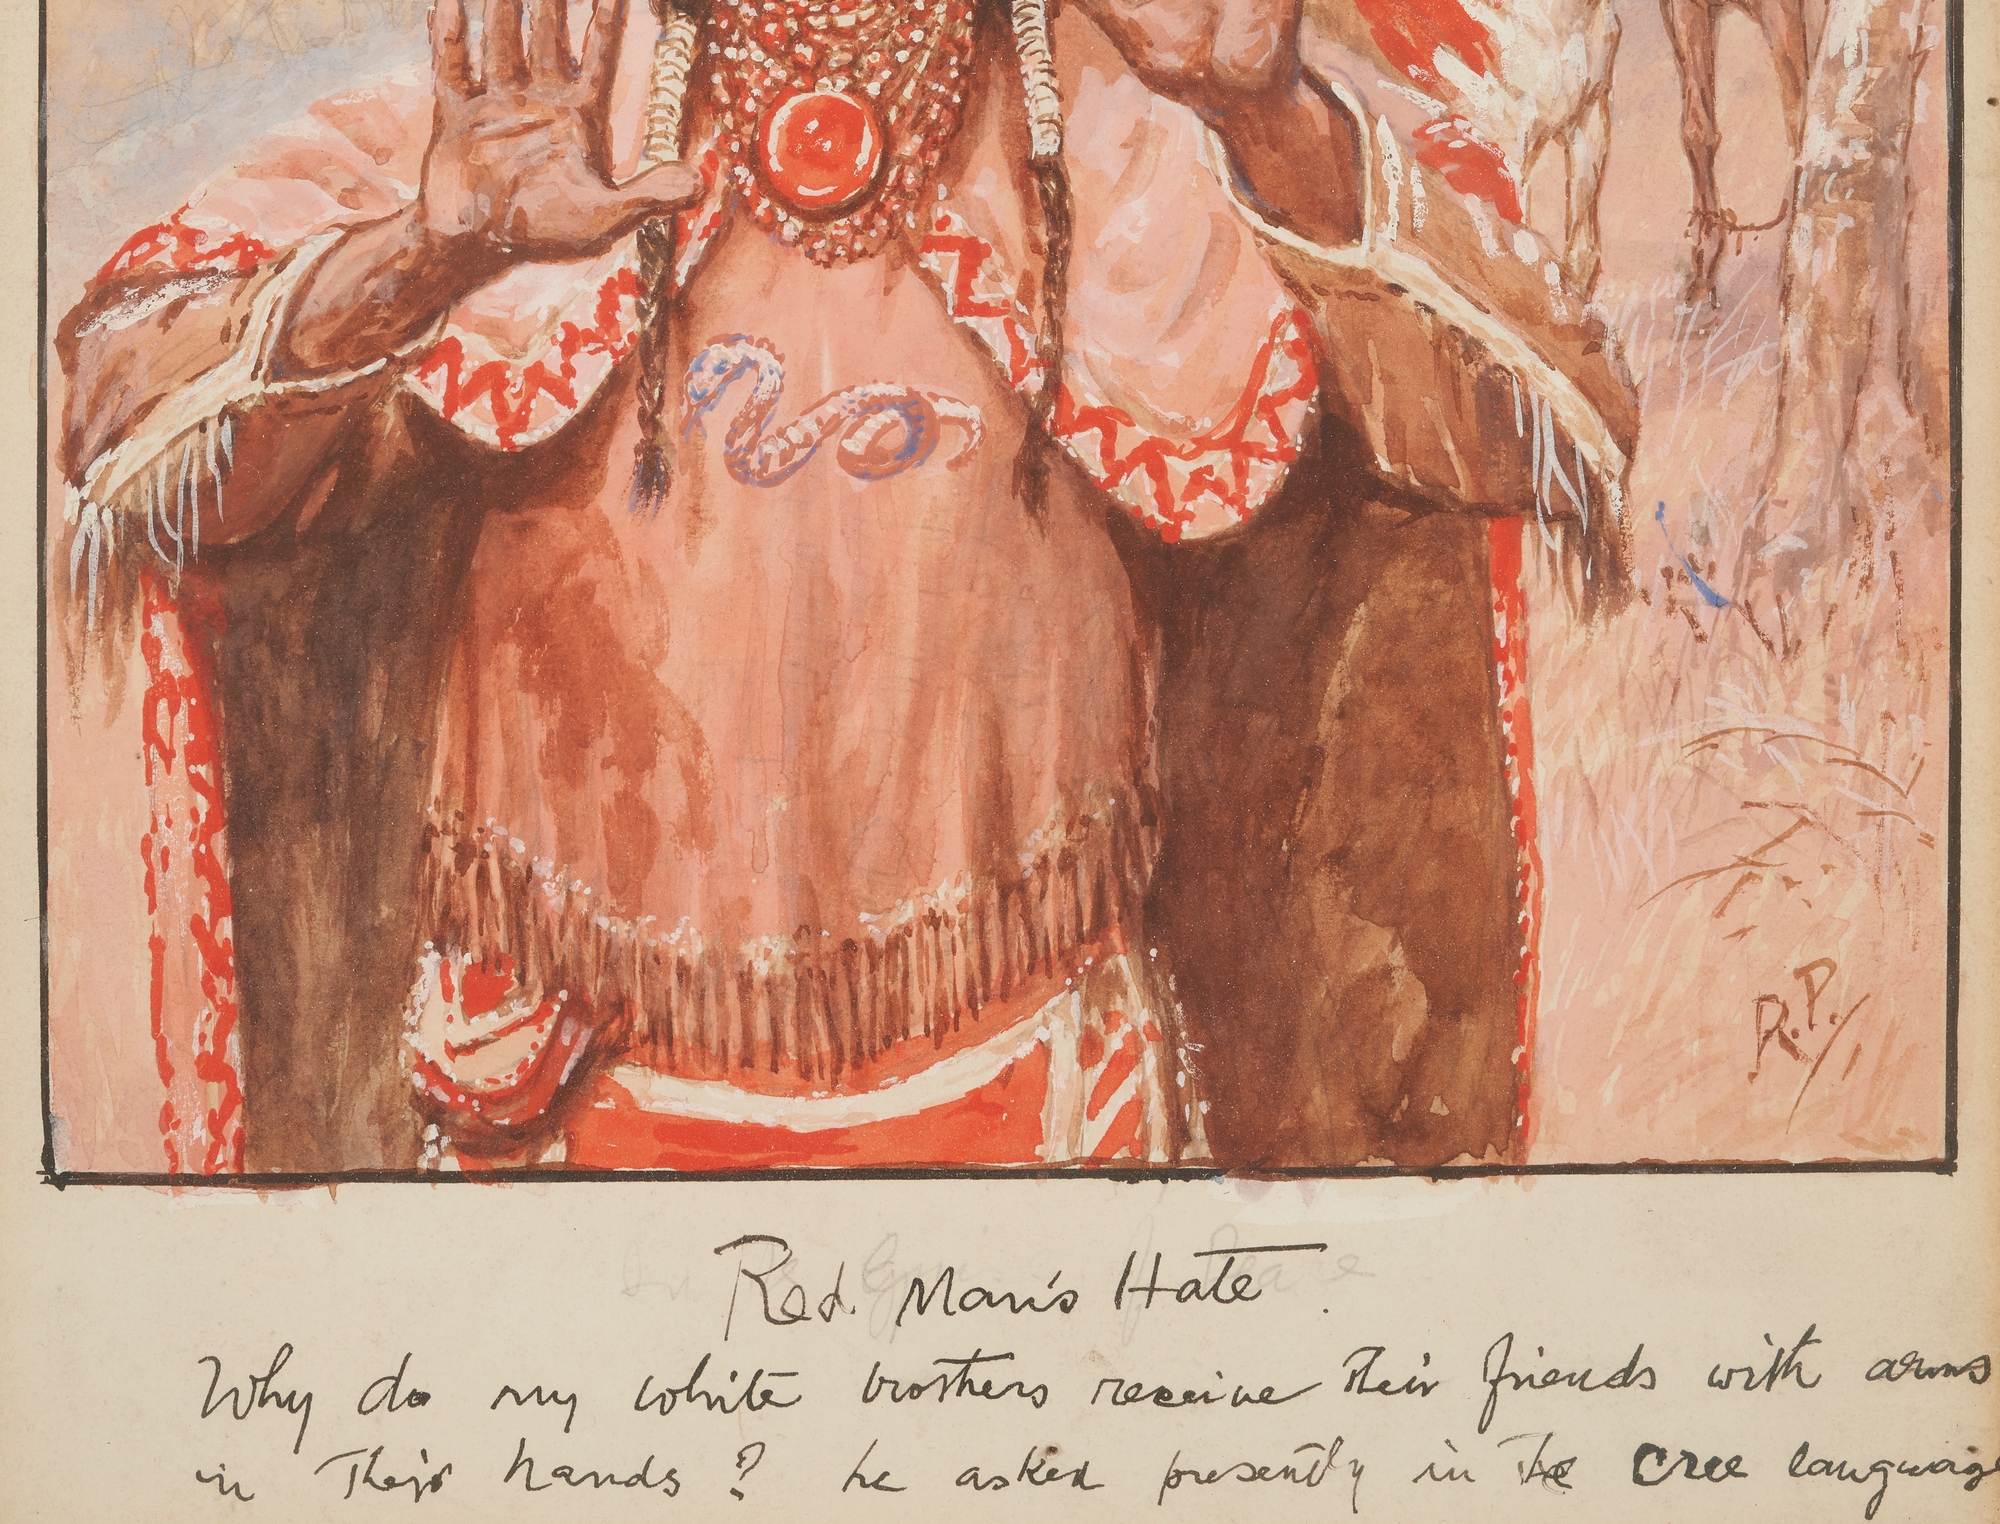 R.P.
Red Man's Hate.
Why do my white brothers receive their friends with arms
in their hands? he asked presently in the Cree language